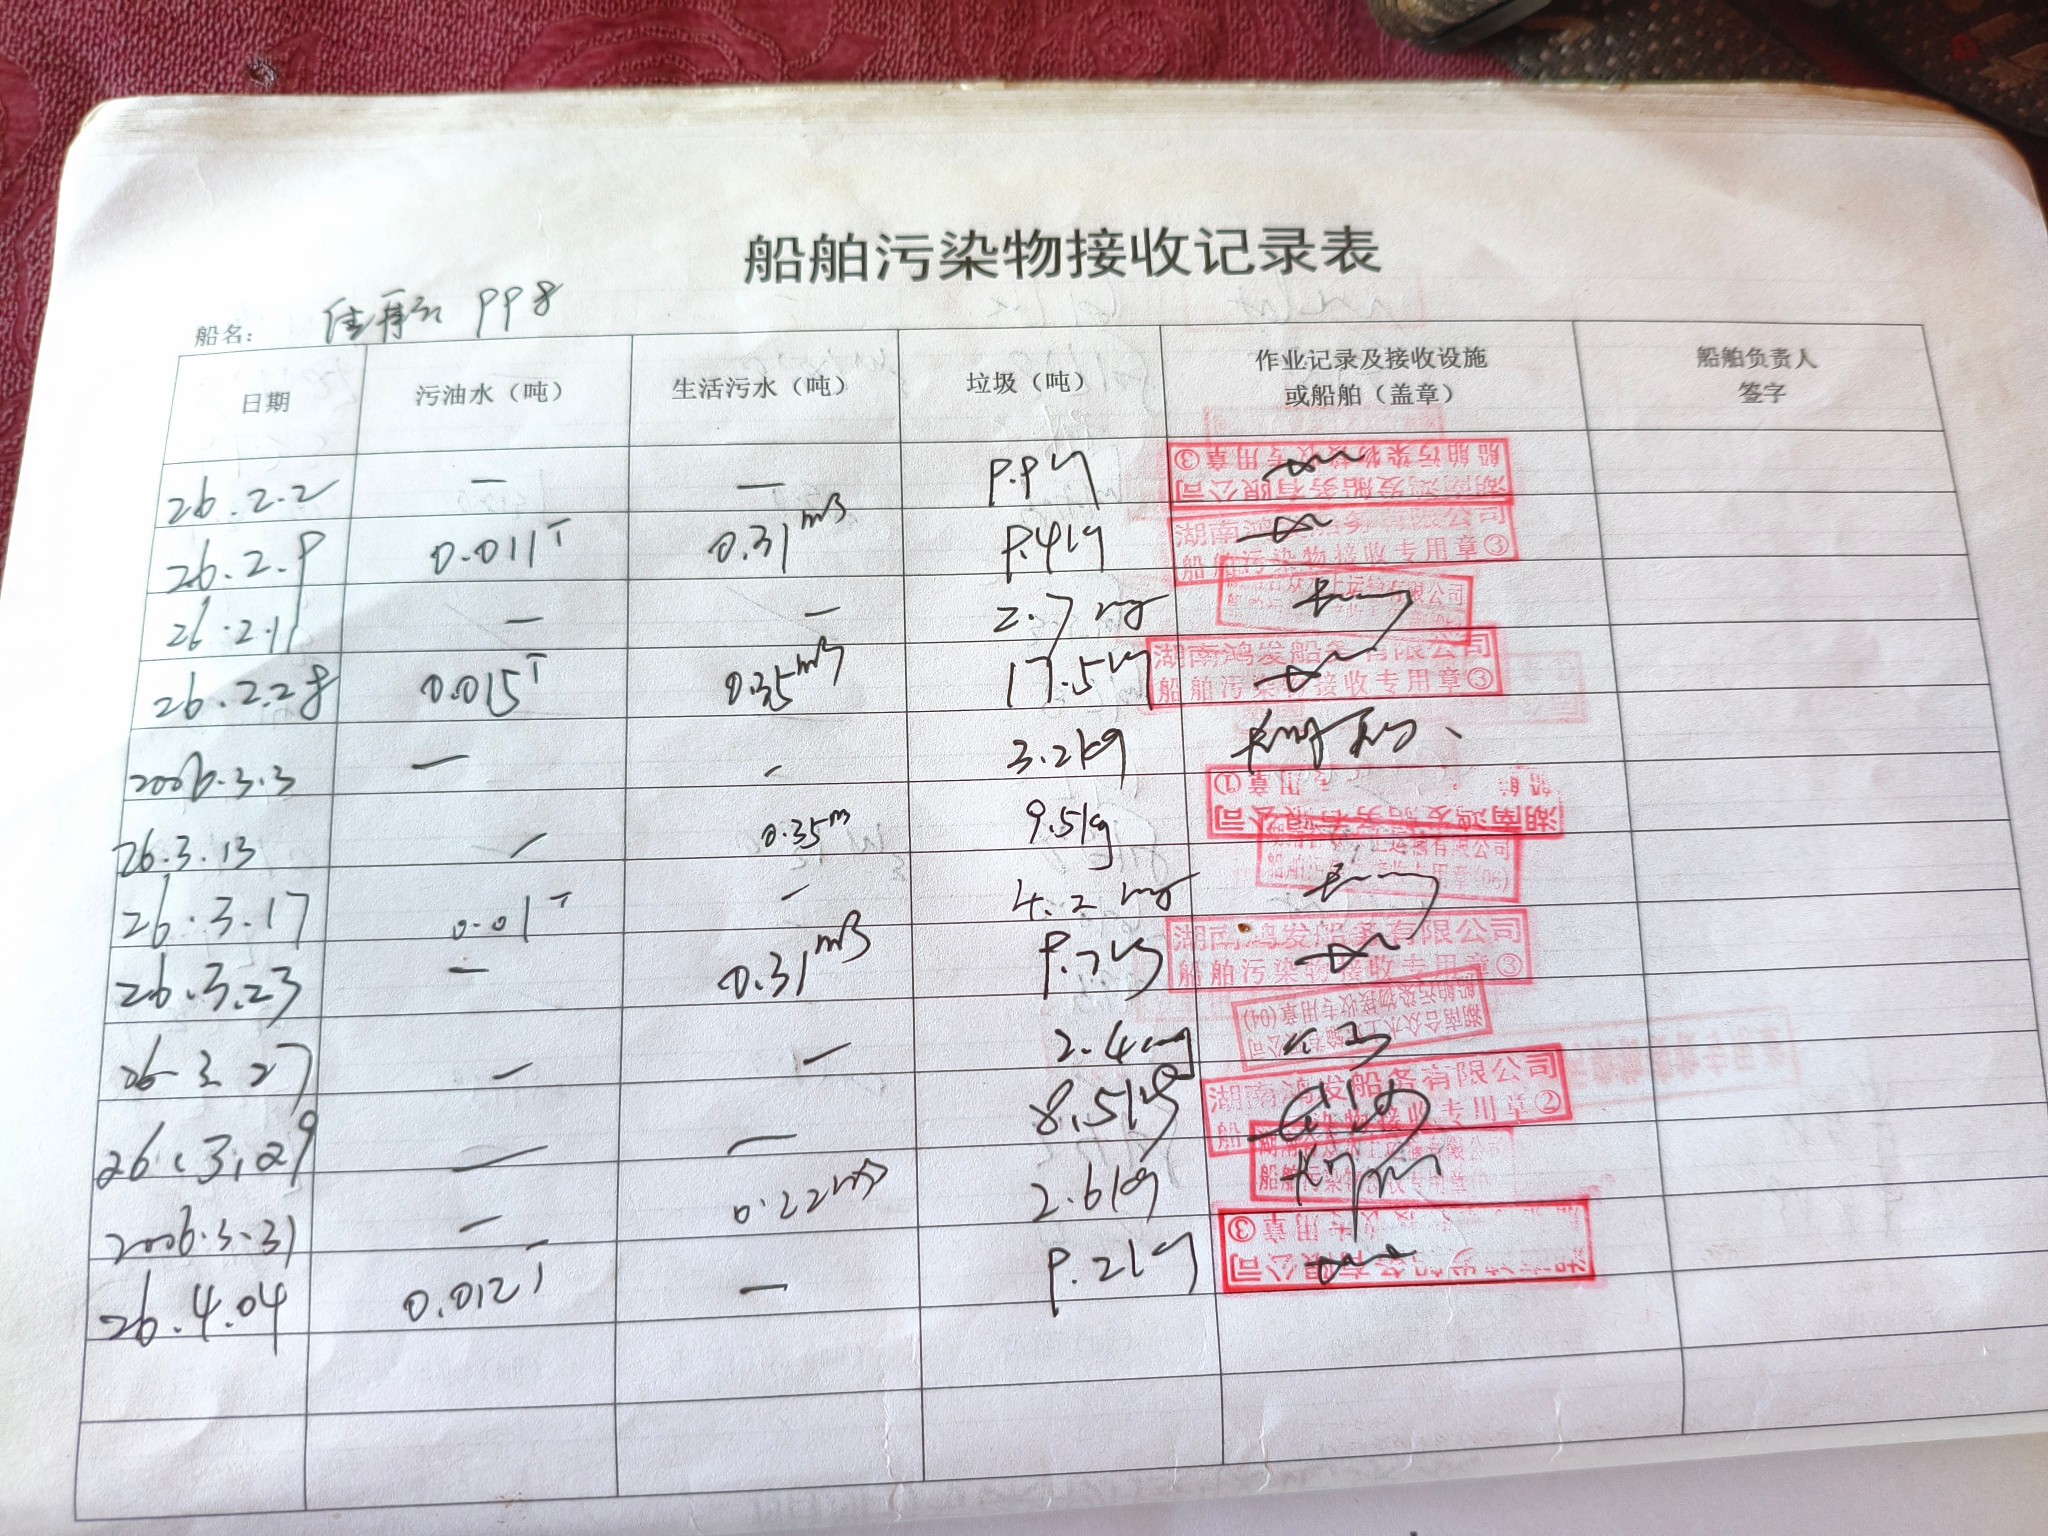 船舶污染物接收记录表
船名： 998
日期 污油水（吨） 生活污水（吨） 垃圾（吨） 作业记录及接收设施或船舶（盖章） 船舶负责人签字
26.2.2 — — 9.9kg 湖南鸿发船务有限公司 船舶污染物接收专用章③
26.2.9 0.011T 0.31m3 9.4kg 湖南鸿发船务有限公司 船舶污染物接收专用章③
26.2.11 — — 2.7kg
26.2.28 0.015T 0.35m3 17.5kg 湖南鸿发船务有限公司 船舶污染物接收专用章③
2026.3.3 — — 3.2kg
26.3.13 — 0.35m 9.5kg 湖南鸿发船务有限公司 船舶 专用章①
26.3.17 0.01T — 4.2kg
26.3.23 — 0.31m3 9.7kg 湖南鸿发船务有限公司 船舶污染物接收专用章③
26.3.27 — — 2.4kg 湖南合众水上运输有限公司 船舶污染物接收专用章(04)
26.3.29 — — 8.5kg 湖南鸿发船务有限公司 船舶污染物接收专用章②
2026.3.31 — 0.22m3 2.6kg
26.4.04 0.012T — 9.2kg 专用章③